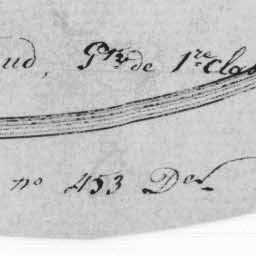 ud, G^(er) de 1^(re) Clas
n° 453 D^(er)